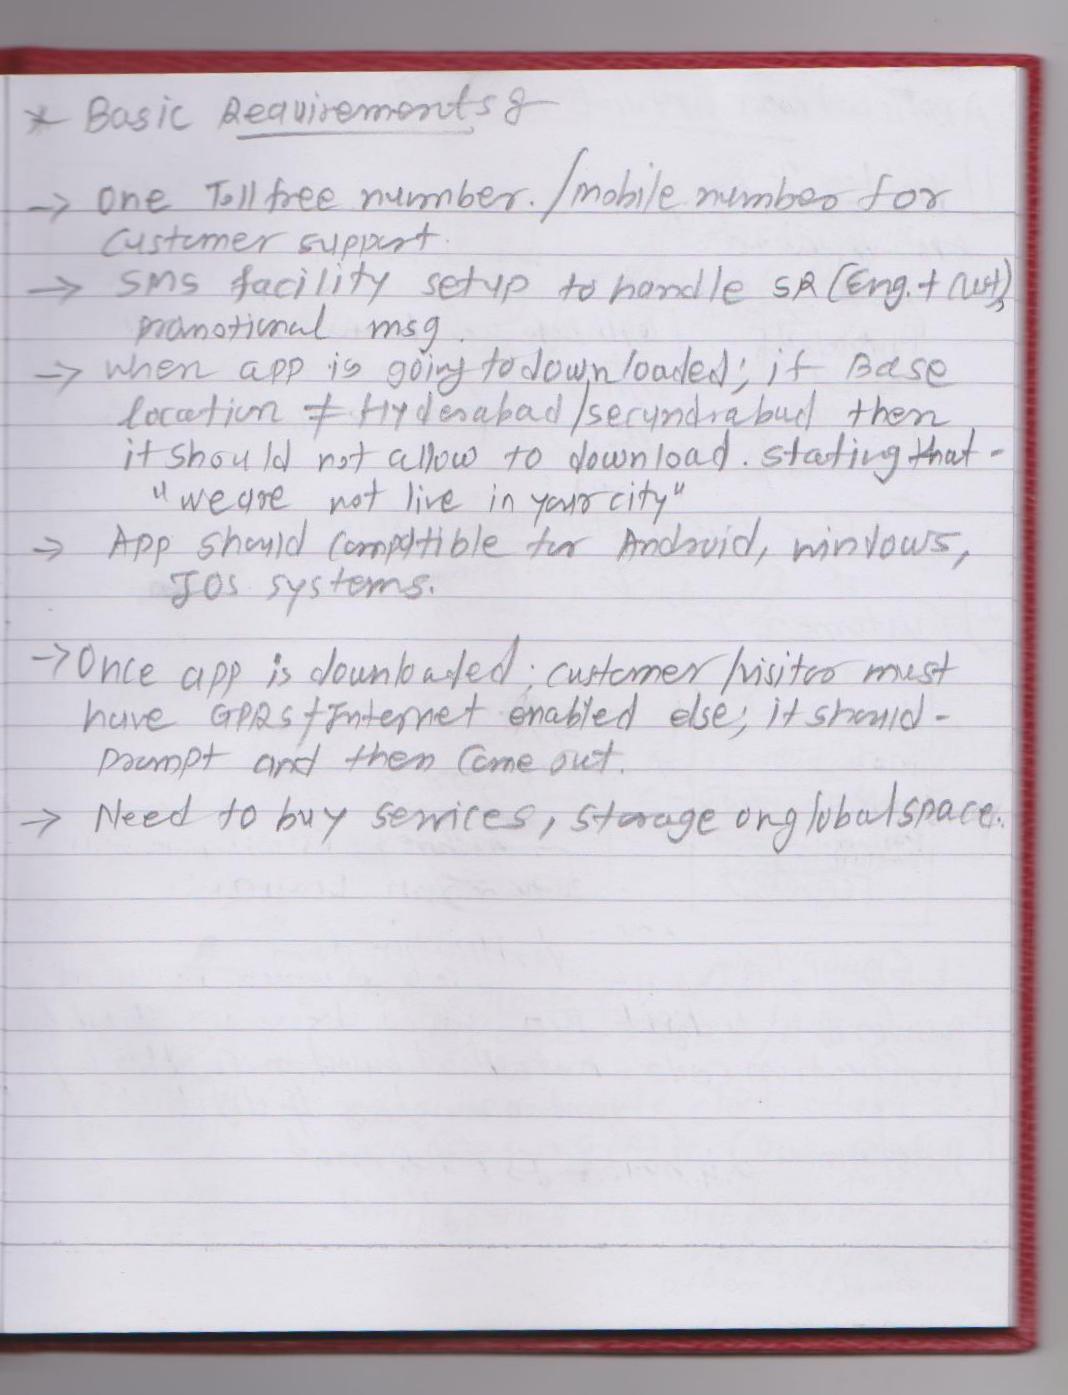 * Basic Requirements :-
→ One Toll free number. / mobile number for
customer support.
→ SMS facility setup to handle SR (Eng. + Cust),
promotional msg.
→ when app is going to downloaded; if Base
location ≠ Hyderabad/secundrabad then
it should not allow to download. stating that -
"we are not live in your city"
→ App should compatible for Android, windows,
IOS systems.
→ Once app is downloaded; customer/visitor must
have GPRS + Internet enabled else; it should -
prompt and then come out.
→ Need to buy services, storage on global space.